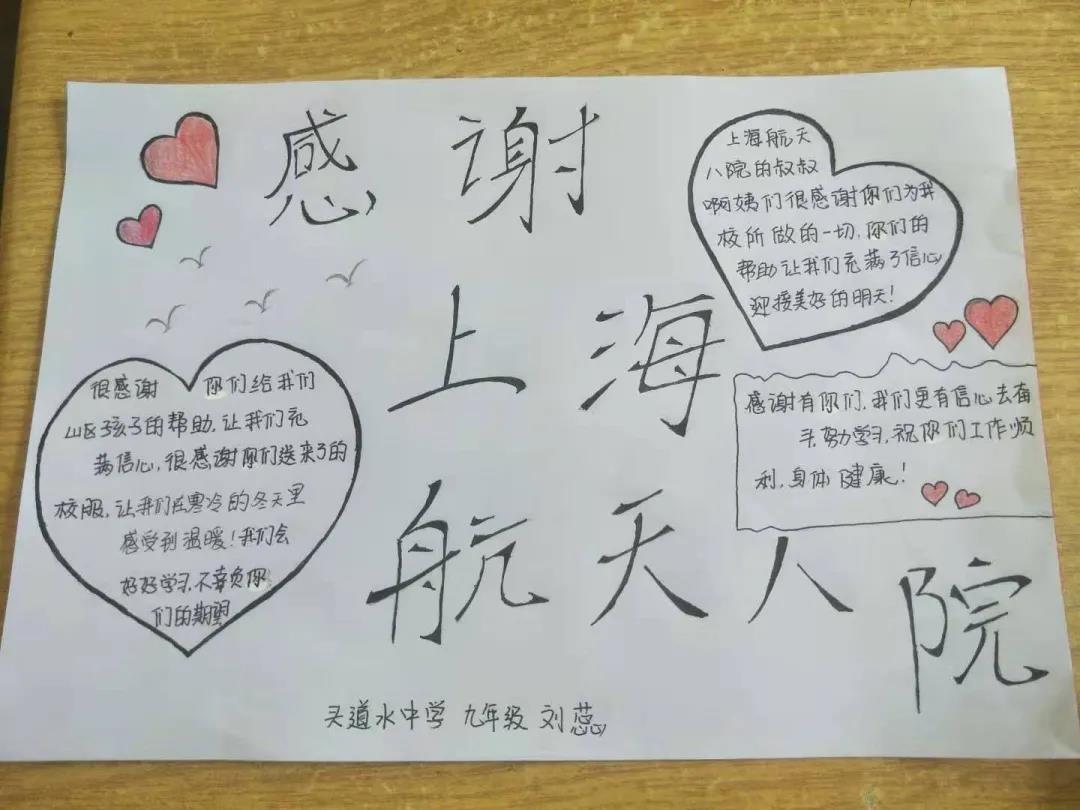 感谢
上海
航天八院
上海航天
八院的叔叔
啊姨们很感谢你们为我
校所做的一切,你们的
帮助让我们充满了信心
迎接美好的明天!
感谢有你们,我们更有信心去奋
斗,努力学习,祝你们工作顺
利,身体健康!
很感谢 你们给我们
山区孩子的帮助,让我们充
满信心,很感谢你们送来了的
校服,让我们在寒冷的冬天里
感受到温暖!我们会
好好学习,不辜负你
们的期望
头道水中学 九年级 刘蕊